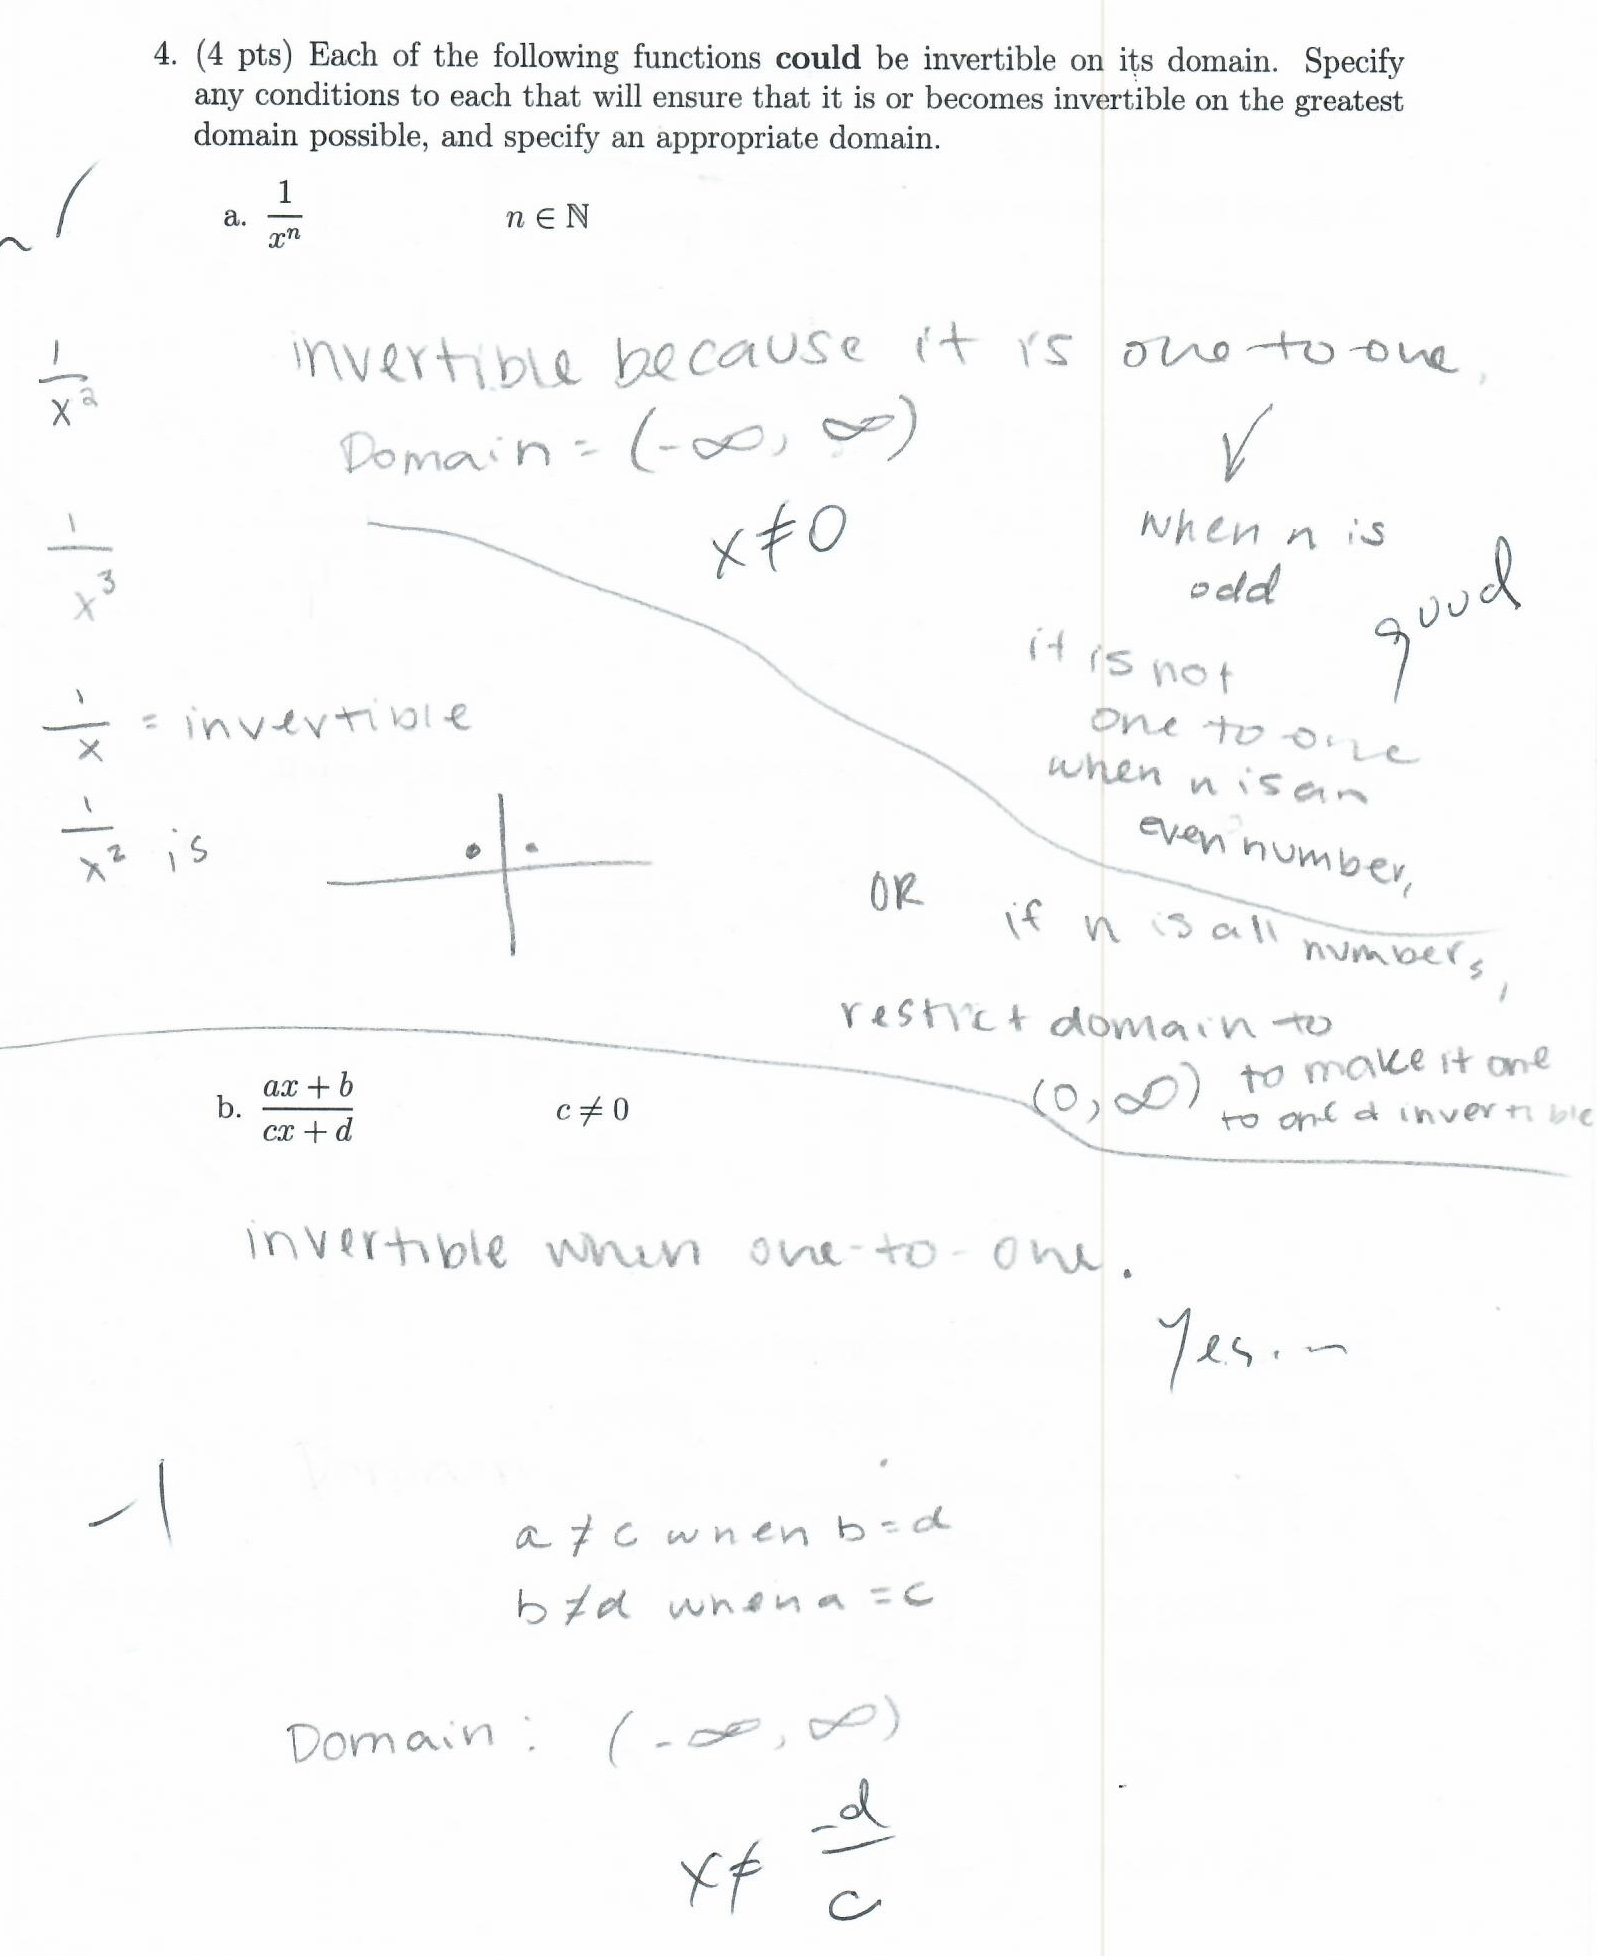 4. (4 pts) Each of the following functions could be invertible on its domain. Specify
any conditions to each that will ensure that it is or becomes invertible on the greatest
domain possible, and specify an appropriate domain.
~1
a. 1/xⁿ n ∈ ℕ
invertible because it is one to one,
1/x²
Domain = (-∞, ∞)
x≠0
when n is
odd
good
1/x³
it is not
one to one
when n is an
even number,
1/x = invertible
1/x² is
OR if n is all numbers,
restrict domain to
(0, ∞) to make it one
to one & invertible
b. (ax + b)/(cx + d) c ≠ 0
invertible when one-to-one.
Yes. ~
-1
a ≠ c when b = d
b ≠ d when a = c
Domain: (-∞, ∞)
x ≠ -d/c